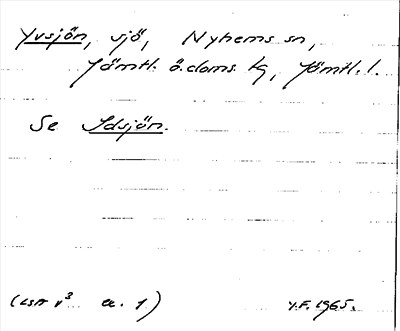 Yvsjön, sjö, Nyhems sn,
Jämtl. ö. doms. tg, Jämtl. l.
Se Idsjön.
a. 1)
Y.F. 1965.